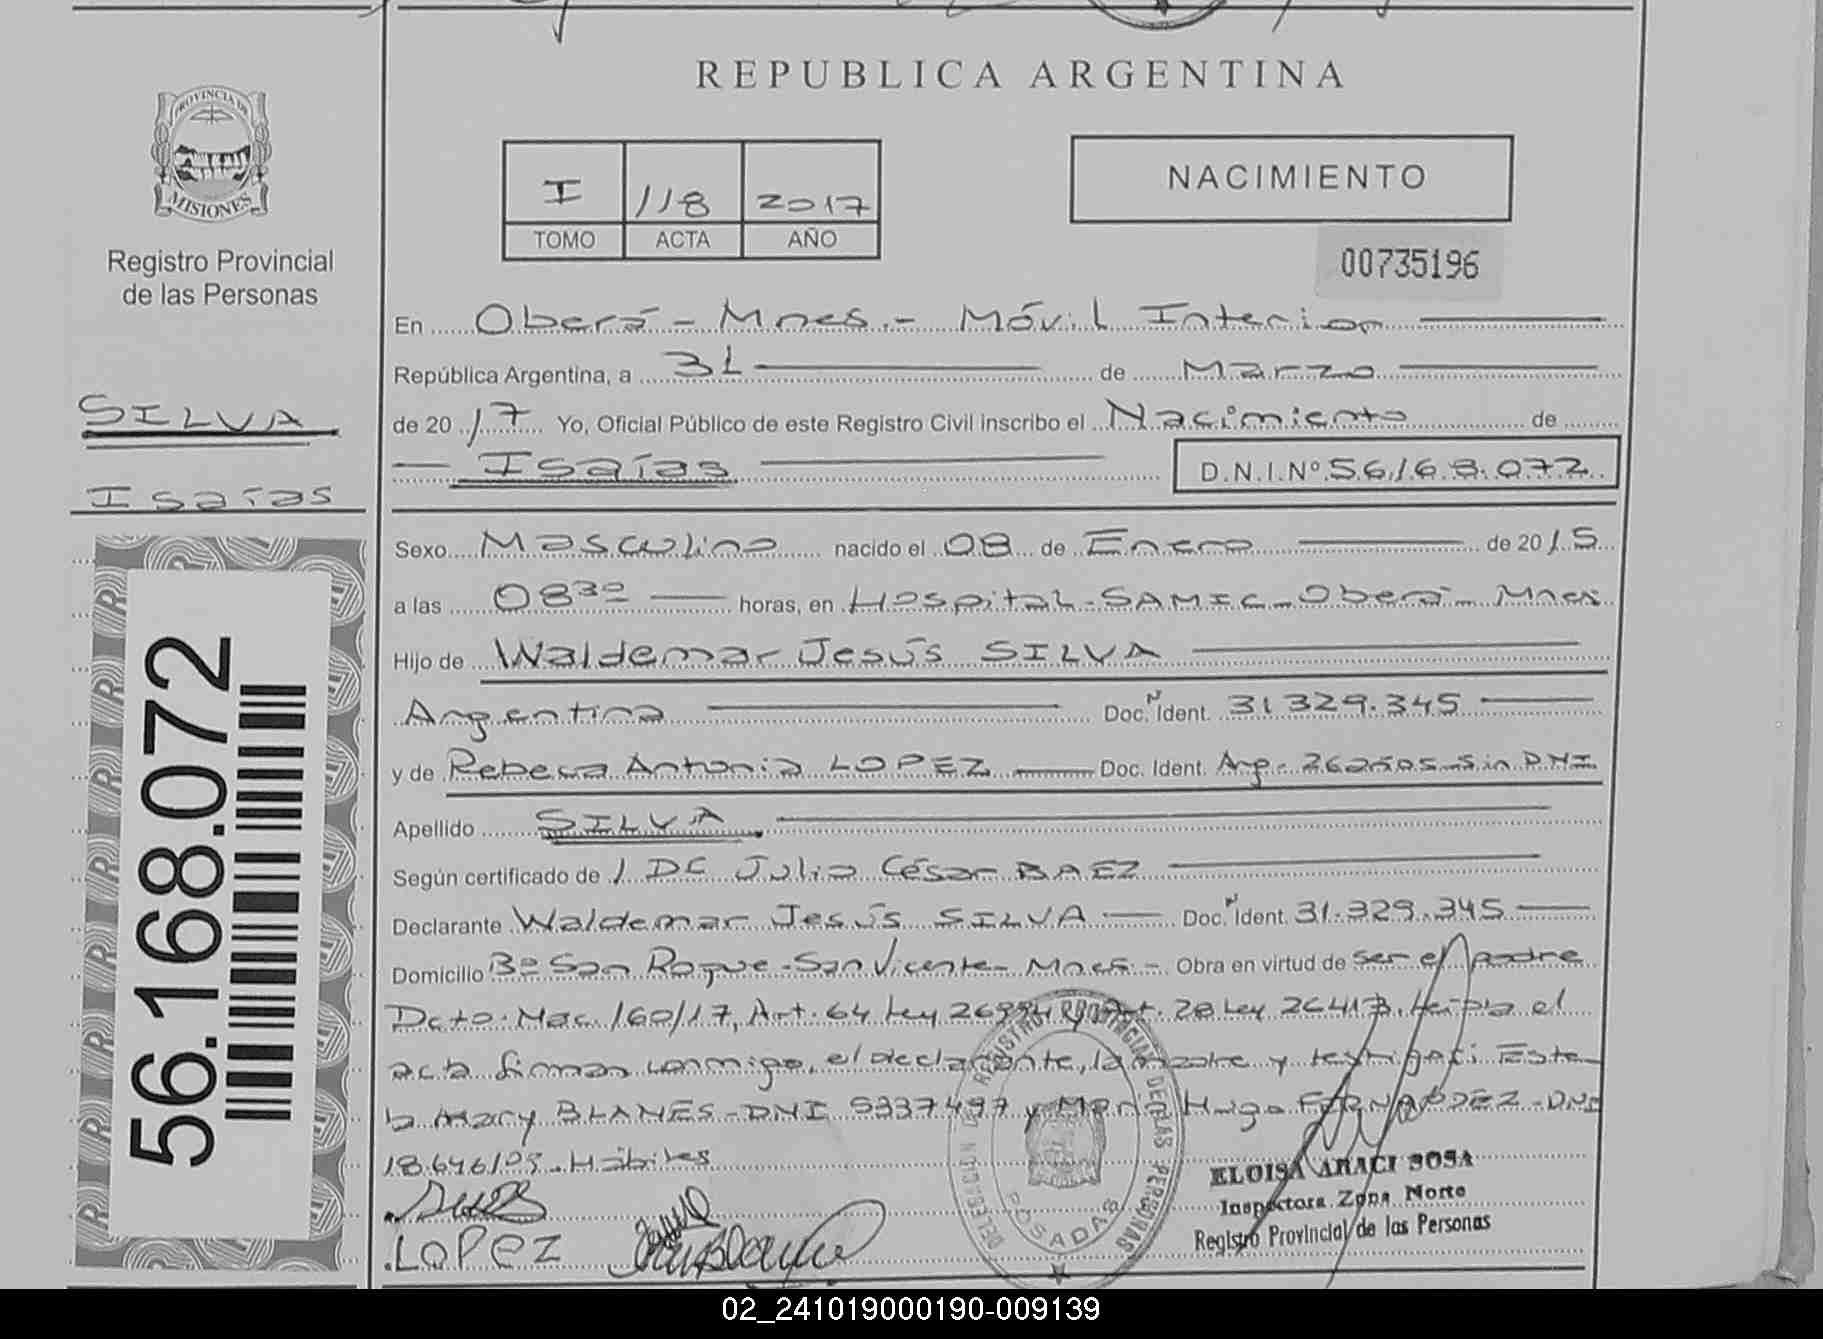 REPUBLICA ARGENTINA
PROVINCIA DE
MISIONES
Registro Provincial
de las Personas
I 118 2017
TOMO ACTA AÑO
NACIMIENTO
00735196
SILVA
Isaías
56.168.072
En Oberá - Mnes. - Móvil Interior
República Argentina, a 31 de Marzo
de 2017 Yo, Oficial Público de este Registro Civil inscribo el Nacimiento de
Isaías D.N.I.Nº 56.168.072
Sexo Masculino nacido el 08 de Enero de 2015
a las 08 30 horas, en Hospital SAMIC - Oberá - Mnes
Hijo de Waldemar Jesús SILVA
Argentina Doc. Ident. 31329.345
y de Rebeca Antonia LOPEZ Doc. Ident. Arg. 262505 Sin DNI
Apellido SILVA
Según certificado de 1 DC Julio César BAEZ
Declarante Waldemar Jesús SILVA Doc. Ident. 31.329.345
Domicilio Bº San Roque - San Vicente - Mnes - Obra en virtud de ser el padre
Dcto. Nac. 160/17, Art. 64 Ley 26994 y Art. 28 Ley 26413. Leida el
acta firman conmigo, el declarante, la madre y testigos: Este-
la Mary BLANES - DNI 5337497 y Mario Hugo FERNANDEZ - DNI
18.646109. Hábiles
LOPEZ
DELEGACION DE REGISTRO PROVINCIAL DE LAS PERSONAS
POSADAS
ELOISA ARACI SOSA
Inspectora Zona Norte
Registro Provincial de las Personas
02_241019000190-009139